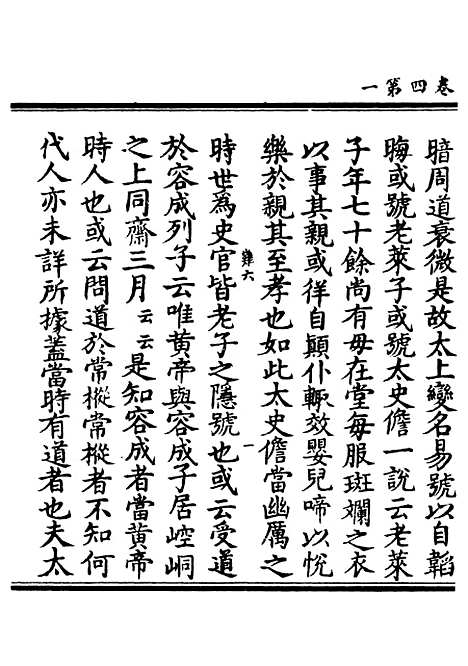 卷四第一
暗周道衰微是故太上變名易號以自韜
晦或號老萊子或號太史儋一說云老萊
子年七十餘尚有母在堂每服斑斕之衣
以事其親或徉自顛仆輙效嬰兒啼以悅
樂於親其至孝也如此太史儋當幽厲之
難六 一
時世為史官皆老子之隱號也或云受道
於容成列子云唯黄帝與容成子居崆峒
之上同齋三月云云是知容成者當黄帝
時人也或云問道於常樅常樅者不知何
代人亦未詳所據蓋當時有道者也夫太